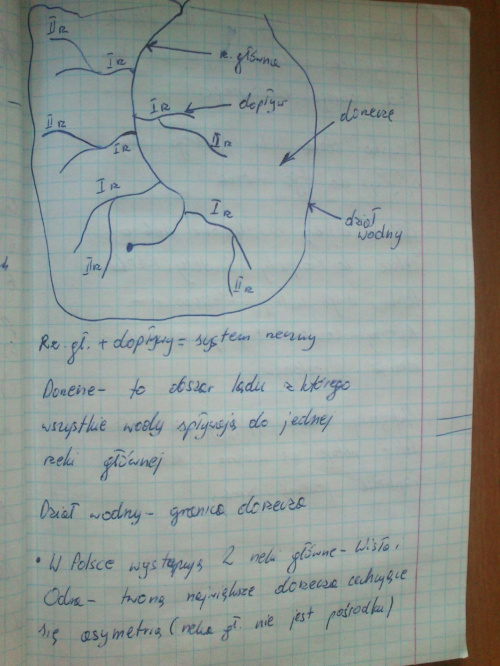 II R
rz. główna
I R
I R
dopływ
dorzecze
II R
I R
II R
I R
I R
dział
wodny
II R
II R
Rz. gł. + dopływy = system rzeczny
Dorzecze - to obszar lądu z którego
wszystkie wody spływają do jednej
rzeki głównej
Dział wodny - granica dorzecza
• W Polsce występują 2 rzeki główne - Wisła i
Odra - tworzą największe dorzecza cechujące
się asymetrią (rzeka gł. nie jest pośrodku)